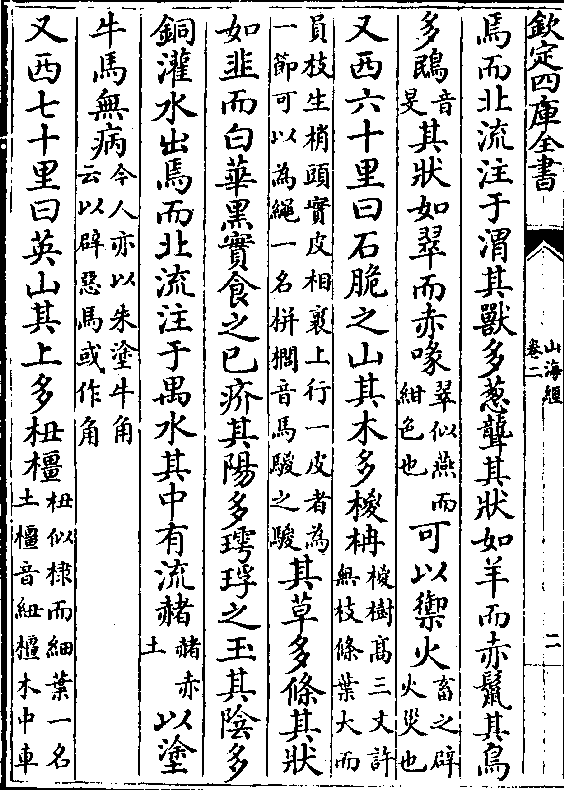 欽定四庫全書 山海經 卷二 二
焉而北流注于渭其獸多葱聾其狀如羊而赤鬣其鳥
多鴖音旻其狀如翠而赤喙翠似燕而紺色也可以禦火畜之辟火災也
又西六十里曰石脆之山其木多椶枏椶樹髙三丈許無枝條葉大而
員枝生梢頭實皮相裹上行一皮者為一節可以為繩一名栟櫚音馬騣之騣其草多條其狀
如韭而白華黑實食之已疥其陽多㻬琈之玉其陰多
銅灌水出焉而北流注于禺水其中有流赭赭赤土以塗
牛馬無病今人亦以朱塗牛角云以辟惡馬或作角
又西七十里曰英山其上多杻橿杻似棣而細葉一名土橿音紐橿木中車